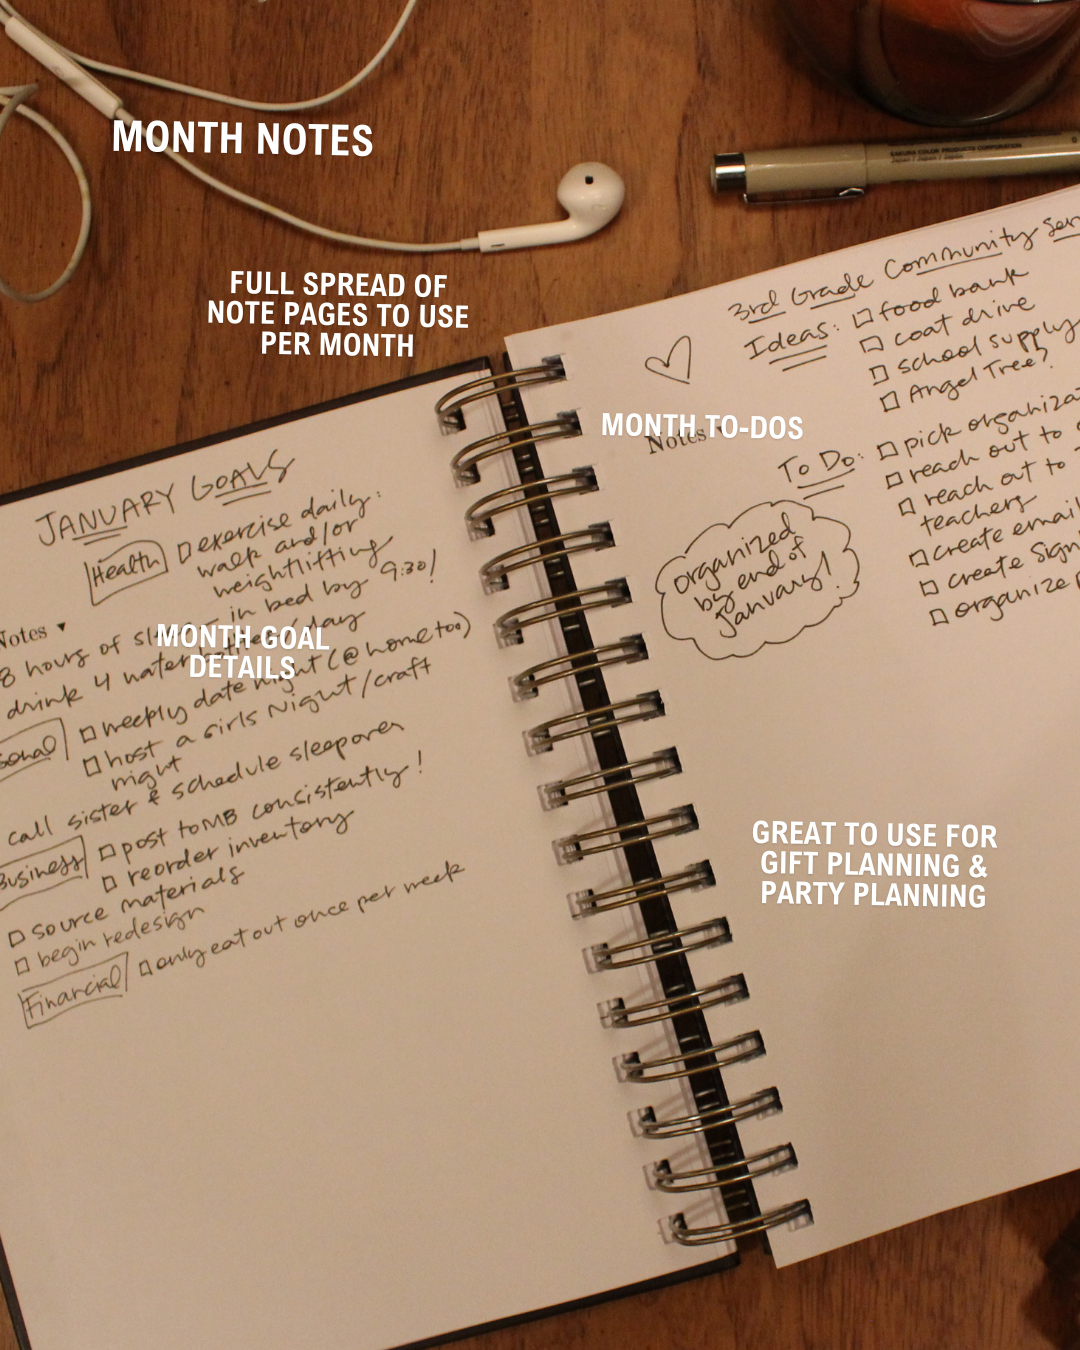 MONTH NOTES
SAKURA COLOR PRODUCTS CORPORATION
Japan / Japon / Japan
FULL SPREAD OF
NOTE PAGES TO USE
PER MONTH
JANUARY GOALS
Health
□ exercise daily:
walk and/or
weightlifting
in bed by 9:30!
Notes ▾
8 hours of
drink 4 water day
MONTH GOAL
DETAILS
□ weekly date night (@ home too)
□ host a Girls Night/craft
night
call sister & schedule sleepover
Business
□ post to MB consistently!
□ reorder inventory
□ source materials
□ begin redesign
Financial
□ only eat out once per week
3rd Grade Community
Ideas:
□ food bank
□ coat drive
□ school supply
□ Angel Tree?
MONTH TO-DOS
Notes
To Do:
□ pick
□ reach out to
□ reach out to
teachers
□ create email
□ create
□ organize
organized
by end of
January!
GREAT TO USE FOR
GIFT PLANNING &
PARTY PLANNING